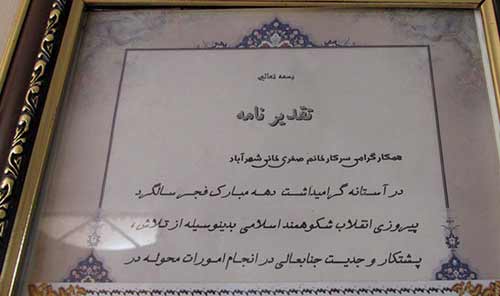 بسمه تعالی
تقدیر نامه
همکار گرامی سرکار خانم صغری خانی شهرآباد
در آستانه گرامیداشت دهه مبارک فجر سالگرد
پیروزی انقلاب شکوهمند اسلامی بدینوسیله از تلاش ،
پشتکار و جدیت جنابعالی در انجام امورات محوله در